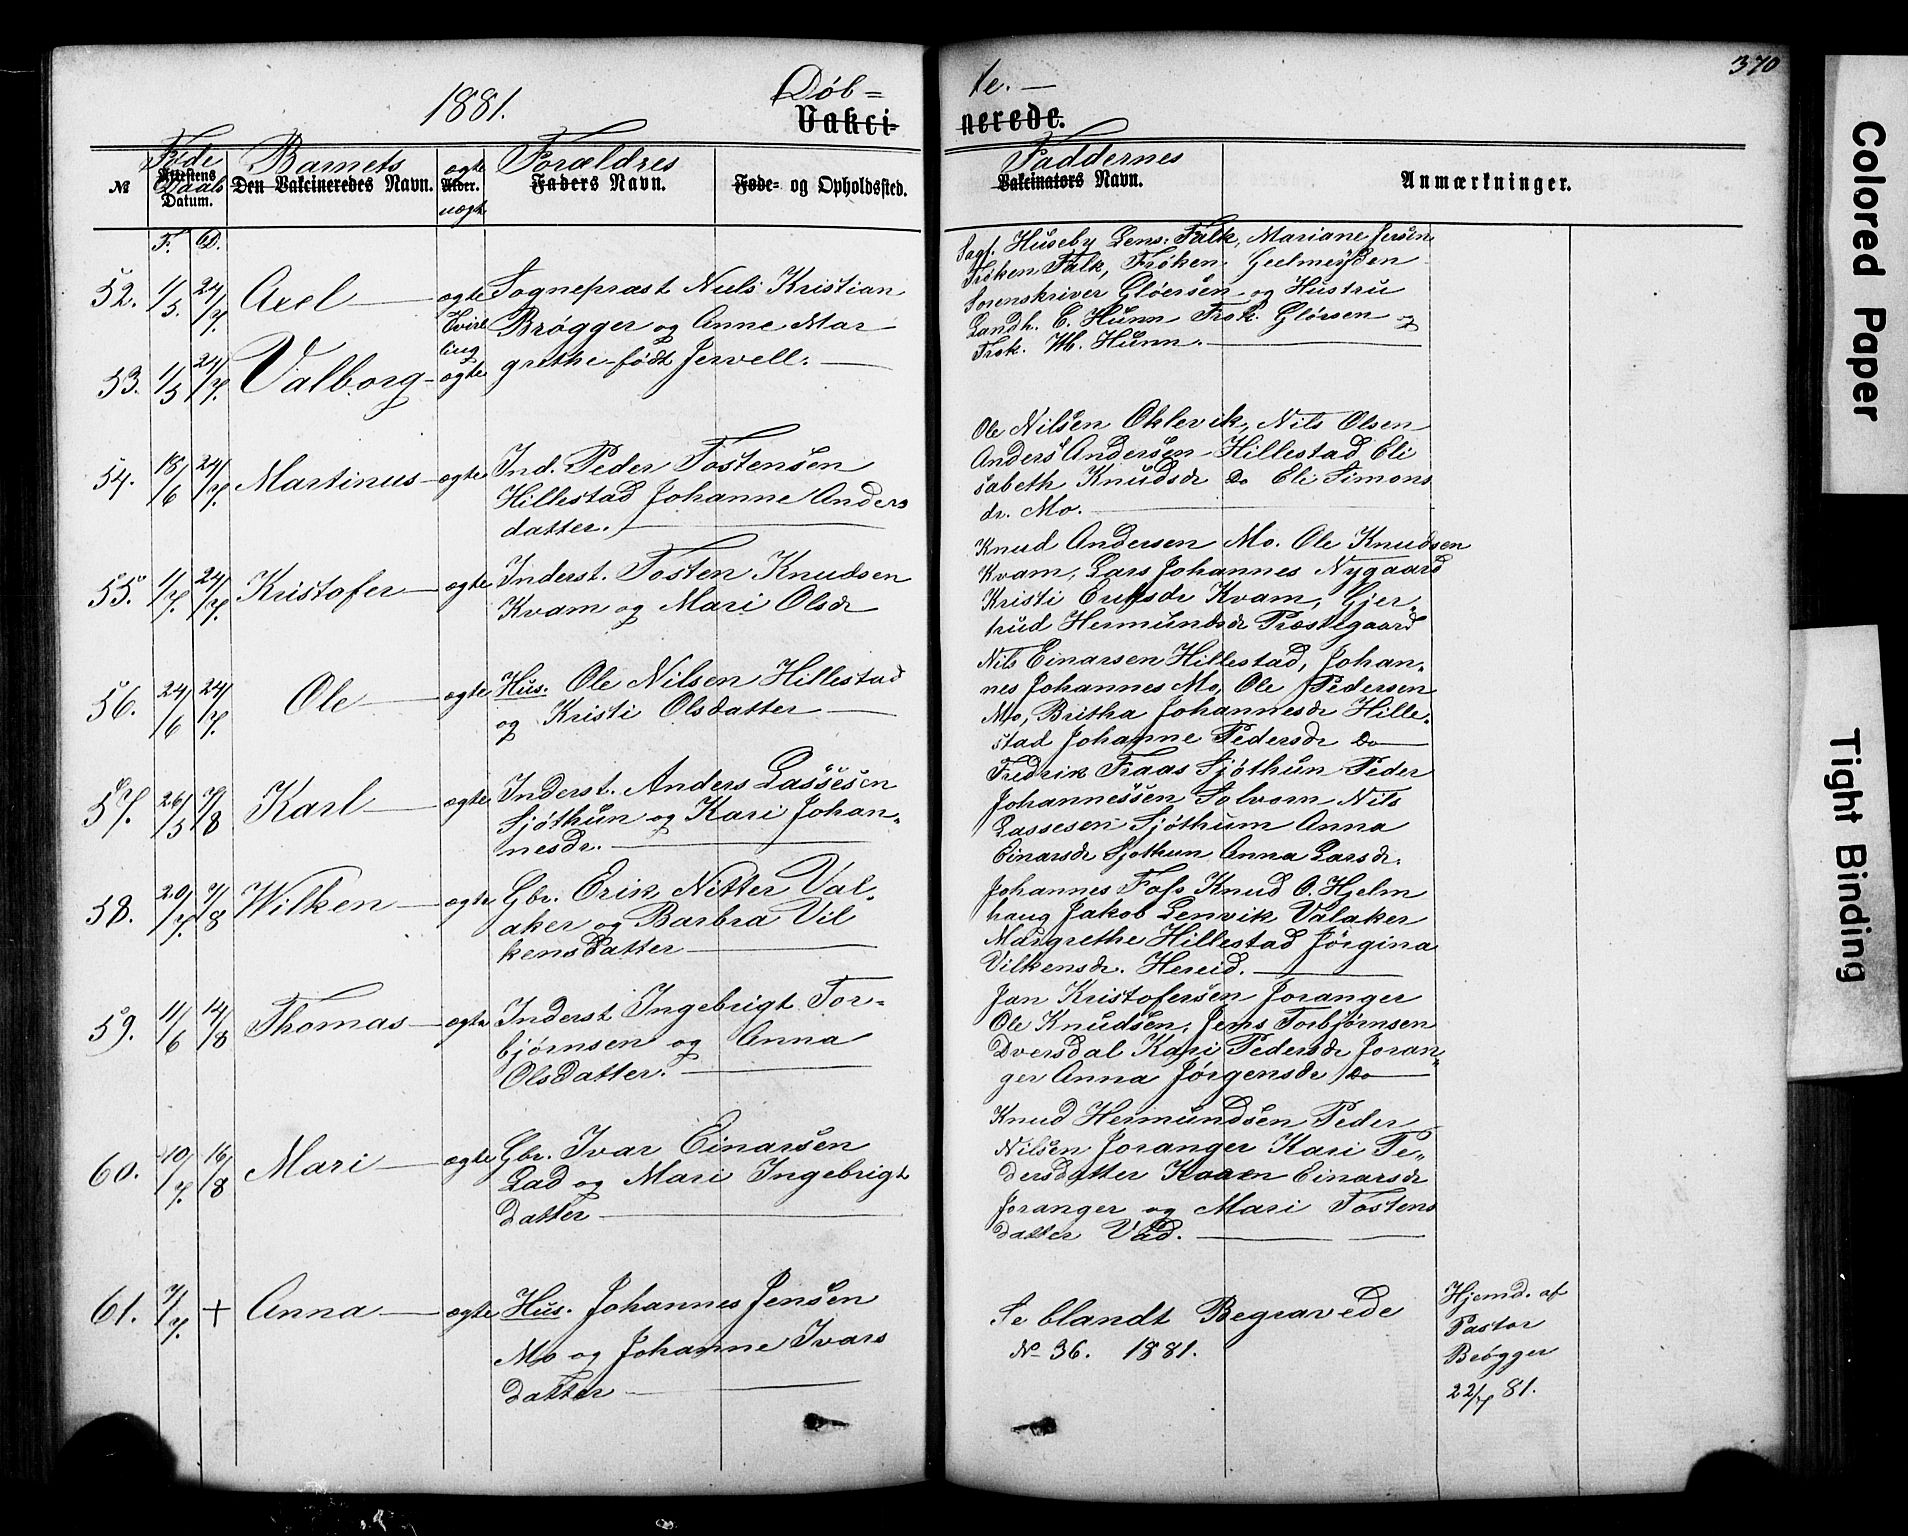 370
1881.
Døb= te. —
Vakci- nerede.
№ Føde Daabs Attestens Datum. Barnets Den Vakcineredes Navn. ægte Alder. uægt Forældres Faders Navn. Føde- og Opholdssted. Faddernes Vakcinators Navn. Anmærkninger.
F. D.
52. 1/5. 24/7. Axel — ægte Sognepræst Niels Kristian
Tvil Brøgger og Anne Mar
ling
53. 1/5 24/7. Valborg — ægte grethe født Jervell. —
Sagf. Huseby Lens: Falk, Mariane Jersin
Frøken Falk, Frøken Geelmeyden
Sorenskriver Gløersen og Hustru
Landh. C. Hunn Frøk. Glørsen og
Frøk. M. Hunn. —
54. 18/6 24/7. Martinus — ægte Ind. Peder Tostensen
Hillestad Johanne Anders
datter. —
Ole Nilsen Oklevik, Nils Olsen
Anders Andersen Hillestad Eli
sabeth Knudsdr Do Eli Simons
dr. Mo.
55. 1/7. 24/7. Kristofer — ægte Inderst. Tosten Knudsen
Kvam og Mari Olsdr
Knud Andersen Mo. Ole Knudsen
Kvam, Lars Johannes Nygaard
Kristi Eriksdr Kvam, Gjer-
trud Hermundsdr Præstegaard
56. 24/6 24/7. Ole — ægte Hus. Ole Nilsen Hillestad
og Kristi Olsdatter —
Nils Einarsen Hillestad, Johan-
nes Johannes Mo, Ole Pedersen
Mo, Britha Johannesdr Hille-
stad Johanne Pedersdr Do —
57. 26/5 7/8 Karl — ægte Inderst. Anders Lassesen
Sjøthun og Kari Johan-
nesdr. —
Fredrik Fraas Sjøthun Peder
Johannessen Solvorn Nils
Lassesen Sjøthum Anna
Einarsdr Sjøthun Anna Larsdr.
58. 20/7. 7/8 Wilken — ægte Gbr. Erik Nitter Val-
aker og Barbra Vil
kensdatter —
Johannes Foss Knud O. Hjelm
haug Jakob Lenvik Valaker
Margrethe Hillestad Jørgina
Vilkensdr. Hereid. —
59. 11/6 14/8 Thomas — ægte Inderst Ingebrigt Tor-
bjørnsen og Anna
Olsdatter. —
Jan Kristofersen Joranger
Ole Knudsen, Jens Torbjørnsen
Dversdal Kari Pedersdr Joran-
ger Anna Jørgensdr Do —
60. 10/7. 16/8 Mari — ægte Gbr. Ivar Einarsen
Lad og Mari Ingebrigt
datter —
Knud Hermundsen Peder
Nilsen Joranger Kari Pe-
dersdatter Karen Einarsdr
Joranger og Mari Tostens
datter Vad. —
61. 7/7. + Anna — ægte Hus. Johannes Jensen
Mo og Johanne Ivars
datter —
Se blandt Begravede
№ 36. 1881.
Hjemd. af
Pastor
Brøgger
22/7 81.
Colored Paper
Tight Binding